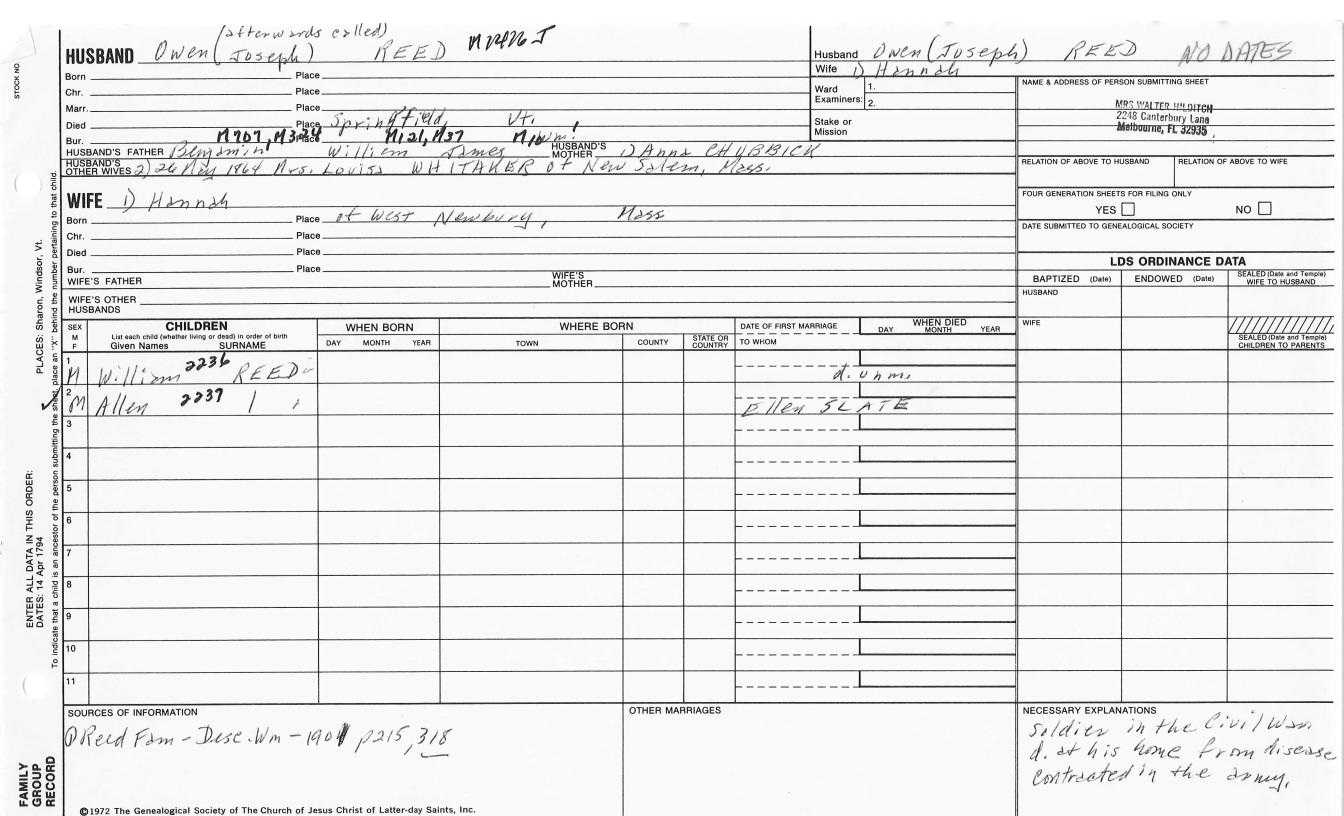 (afterwards called)
HUSBAND Owen (Joseph) REED M2426 J
Born Place
Chr. Place
Marr. Place
Died Place Springfield, Vt.
Bur. M707, M324 Place M121, M37
HUSBAND'S FATHER Benjamin William James HUSBAND'S MOTHER 1) Anna CHUBBICK
HUSBAND'S OTHER WIVES 2) 26 May 1964 Mrs. Louisa WHITAKER of New Salem, Mass.
WIFE 1) Hannah
Born Place of West Newbury, Mass
Chr. Place
Died Place
Bur. Place
WIFE'S FATHER WIFE'S MOTHER
WIFE'S OTHER HUSBANDS
Husband Owen (Joseph) REED NO DATES
Wife 1) Hannah
Ward Examiners: 1.
2.
Stake or Mission
NAME & ADDRESS OF PERSON SUBMITTING SHEET
MRS WALTER HILDITCH
2248 Canterbury Lane
Melbourne, FL 32935
RELATION OF ABOVE TO HUSBAND RELATION OF ABOVE TO WIFE
FOUR GENERATION SHEETS FOR FILING ONLY
YES NO
DATE SUBMITTED TO GENEALOGICAL SOCIETY
LDS ORDINANCE DATA
BAPTIZED (Date) ENDOWED (Date) SEALED (Date and Temple) WIFE TO HUSBAND
HUSBAND
WIFE
SEALED (Date and Temple) CHILDREN TO PARENTS
SEX M F CHILDREN WHEN BORN WHERE BORN DATE OF FIRST MARRIAGE WHEN DIED
List each child (whether living or dead) in order of birth
Given Names SURNAME DAY MONTH YEAR TOWN COUNTY STATE OR COUNTRY TO WHOM DAY MONTH YEAR
1 M William 2236 REED d. unm.
2 M Allen 2237 Ellen SLATE
3
4
5
6
7
8
9
10
11
SOURCES OF INFORMATION
① Reed Fam - Desc. Wm - 1901 p215, 318
OTHER MARRIAGES
NECESSARY EXPLANATIONS
Soldier in the Civil War.
d. at his home from disease
contracted in the army.
©1972 The Genealogical Society of The Church of Jesus Christ of Latter-day Saints, Inc.
STOCK NO
PLACES: Sharon, Windsor, Vt.
ENTER ALL DATA IN THIS ORDER:
DATES: 14 Apr 1794
To indicate that a child is an ancestor of the person submitting the sheet, place an "X" behind the number pertaining to that child.
FAMILY
GROUP
RECORD